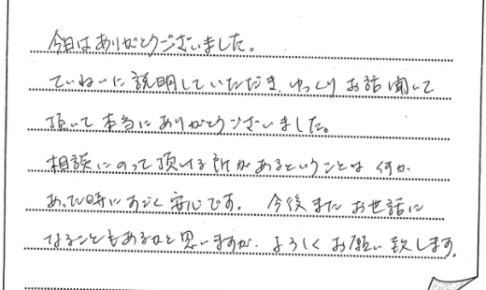 今日はありがとうございました。
ていねいに説明していただき、ゆっくりお話聞いて
頂いて本当にありがとうございました。
相談にのって頂ける所があるということは何か
あった時にすごく安心です。 今後またお世話に
なることもあるかと思いますが、よろしくお願い致します。